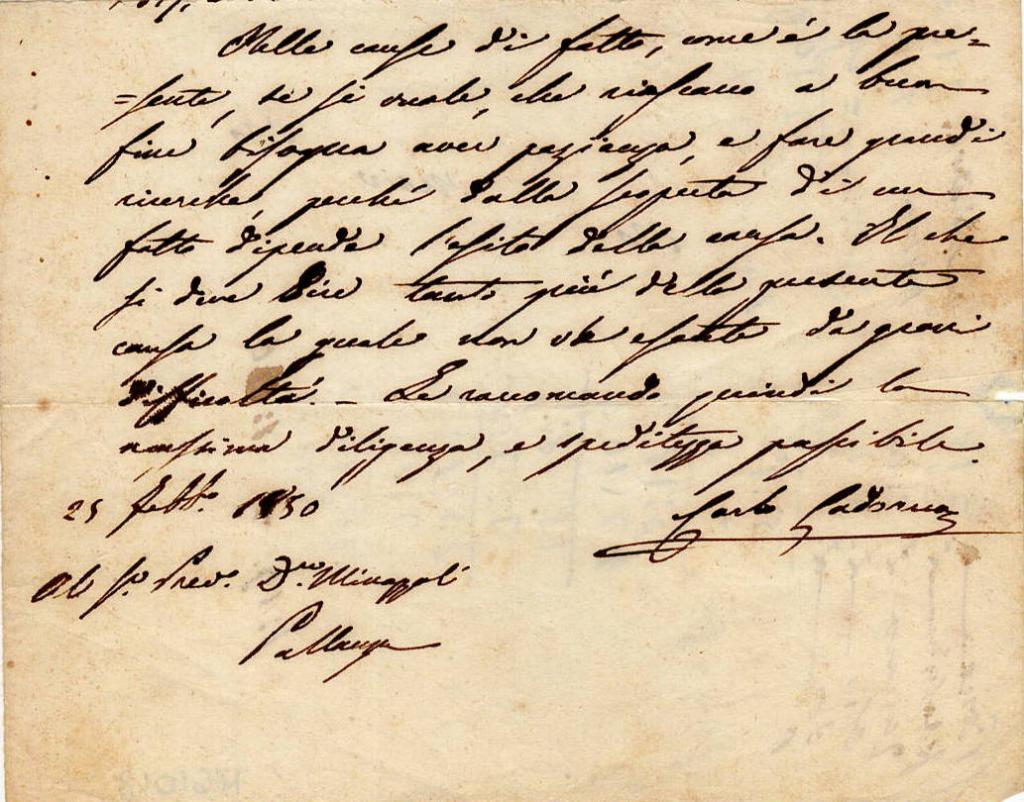 Nelle cause di fatto, come è la pre=
=sente, se si vuole, che riescano a buon
fine bisogna aver pazienza, e fare grandi
ricerche, perché dalla scoperta di un
fatto dipende l'esito della causa. Il che
si deve dire tanto più della presente
causa la quale non va esente da gravi
difficoltà. - Le raccomando quindi la
massima diligenza, e speditezza possibile.
25 Febb.º 1850
Carlo Cadorna
Al S.r Proc.e
Pallanza